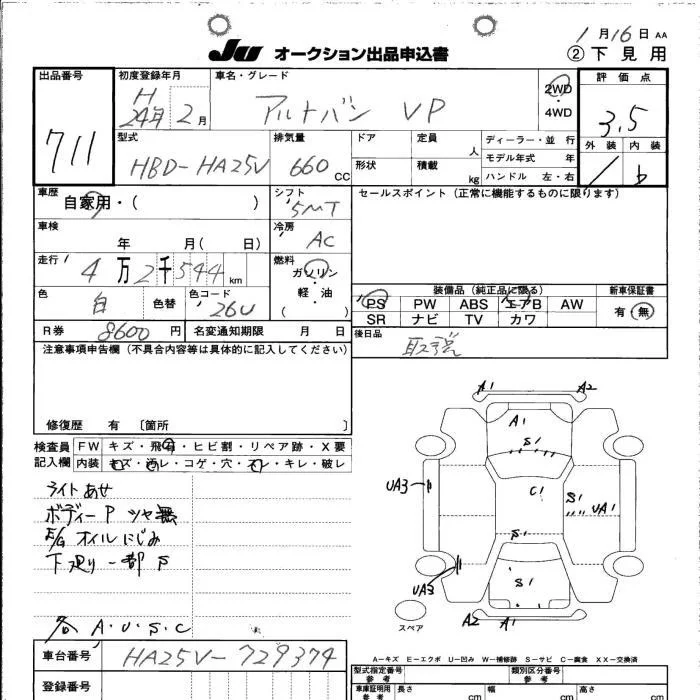 1月16日 AA
JU オークション出品申込書
② 下見用
出品番号 711
初度登録年月 H 24年 2月
車名・グレード アルトバン VP
2WD・4WD
評価点 3.5
外装 内装
型式 HBD-HA25V
排気量 660 CC
ドア 定員 人
形状 積載 kg
ディーラー・並行
モデル年式 年
ハンドル 左・右
車歴 自家用・( )
シフト 5MT
セールスポイント (正常に機能するものに限ります)
車検 年 月( 日)
冷房 AC
走行 4万2千544 km
燃料 ガソリン 軽・油 ( )
色 白 色替 色コード 26U
装備品 (純正品に限る)
PS PW ABS エアB AW
SR ナビ TV カワ
新車保証書 有・無
R券 8600円 名変通知期限 月 日
後日品 取説
注意事項申告欄 (不具合内容等は具体的に記入してください)
修復歴 有 〔箇所 〕
検査員記入欄
FW キズ・飛石・ヒビ割・リペア跡・X要
内装 キズ・汚レ・コゲ・穴・スレ・キレ・破レ
ライトあせ
ボディーP ツヤ無
E/G オイルにじみ
下廻り一部S
各 A・U・S・C
A1 A2
A1
S1
UA3
C1
S1
UA1
S1
S1
UA3
A2 A1
スペア
A-キズ E-エクボ U-凹み W-補修跡 S-サビ C-腐食 XX-交換済
車台番号 HA25V-729374
登録番号
型式指定番号 参考
類別区分番号 参考
車庫証明用 参考 長さ cm 幅 cm 高さ cm